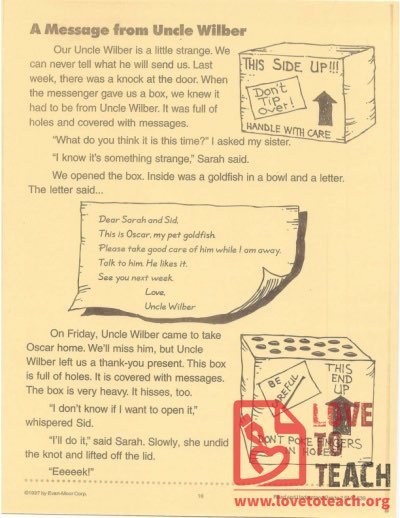 A Message from Uncle Wilber
Our Uncle Wilber is a little strange. We
can never tell what he will send us. Last
week, there was a knock at the door. When
the messenger gave us a box, we knew it
had to be from Uncle Wilber. It was full of
holes and covered with messages.
THIS SIDE UP!!!
Don't
Tip
over!
HANDLE WITH CARE
"What do you think it is this time?" I asked my sister.
"I know it's something strange," Sarah said.
We opened the box. Inside was a goldfish in a bowl and a letter.
The letter said...
Dear Sarah and Sid,
This is Oscar, my pet goldfish.
Please take good care of him while I am away.
Talk to him. He likes it.
See you next week.
Love,
Uncle Wilber
On Friday, Uncle Wilber came to take
Oscar home. We'll miss him, but Uncle
Wilber left us a thank-you present. This box
is full of holes. It is covered with messages.
The box is very heavy. It hisses, too.
"I don't know if I want to open it,"
whispered Sid.
"I'll do it," said Sarah. Slowly, she undid
the knot and lifted off the lid.
"Eeeeek!"
THIS
END
UP
BE
CAREFUL
DON'T POKE FINGERS
IN HOLES
LOVE
TO
TEACH
www.lovetoteach.org
©1997 by Evan-Moor Corp.